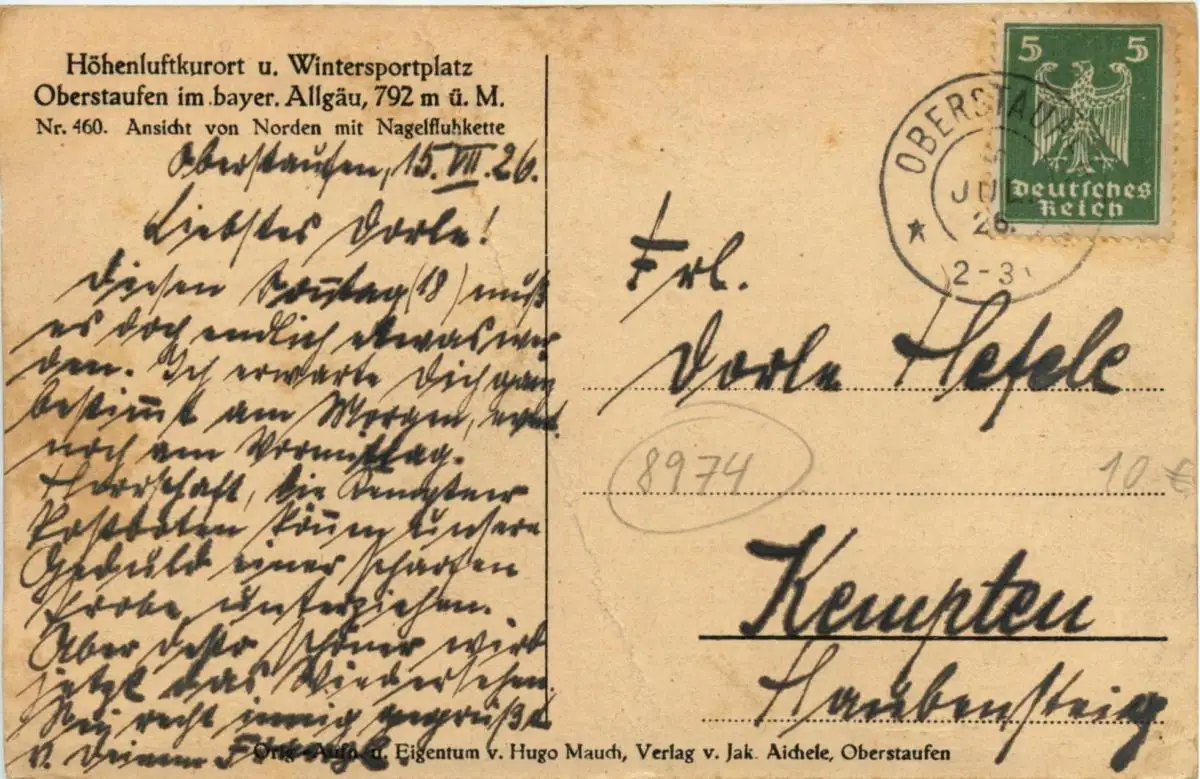 Höhenluftkurort u. Wintersportplatz
Oberstaufen im bayer. Allgäu, 792 m ü. M.
Nr. 460. Ansicht von Norden mit Nagelfluhkette
Oberstaufen, 15. VII. 26.
Liebstes Dorle!
Diesen Sonntag (18) muß
es doch endlich etwas wer
den. Ich erwarte Dich ganz
bestimmt am Morgen,
noch am Vormittag.
Herrschaft, die Kemptner
Postboten können unsere
Geduld einer scharfen
Probe unterziehen.
Aber desto schöner wird
jetzt das Wiedersehen.
Sei recht innig gegrüßt
v. Deinem
5 5
Deutsches
Reich
OBERSTAUF
JUL
26.
2-3
Frl.
Dorle Hefele
8974
10 €
Kempten
Haubensteig
Orig.-Aufn. u. Eigentum v. Hugo Mauch, Verlag v. Jak. Aichele, Oberstaufen